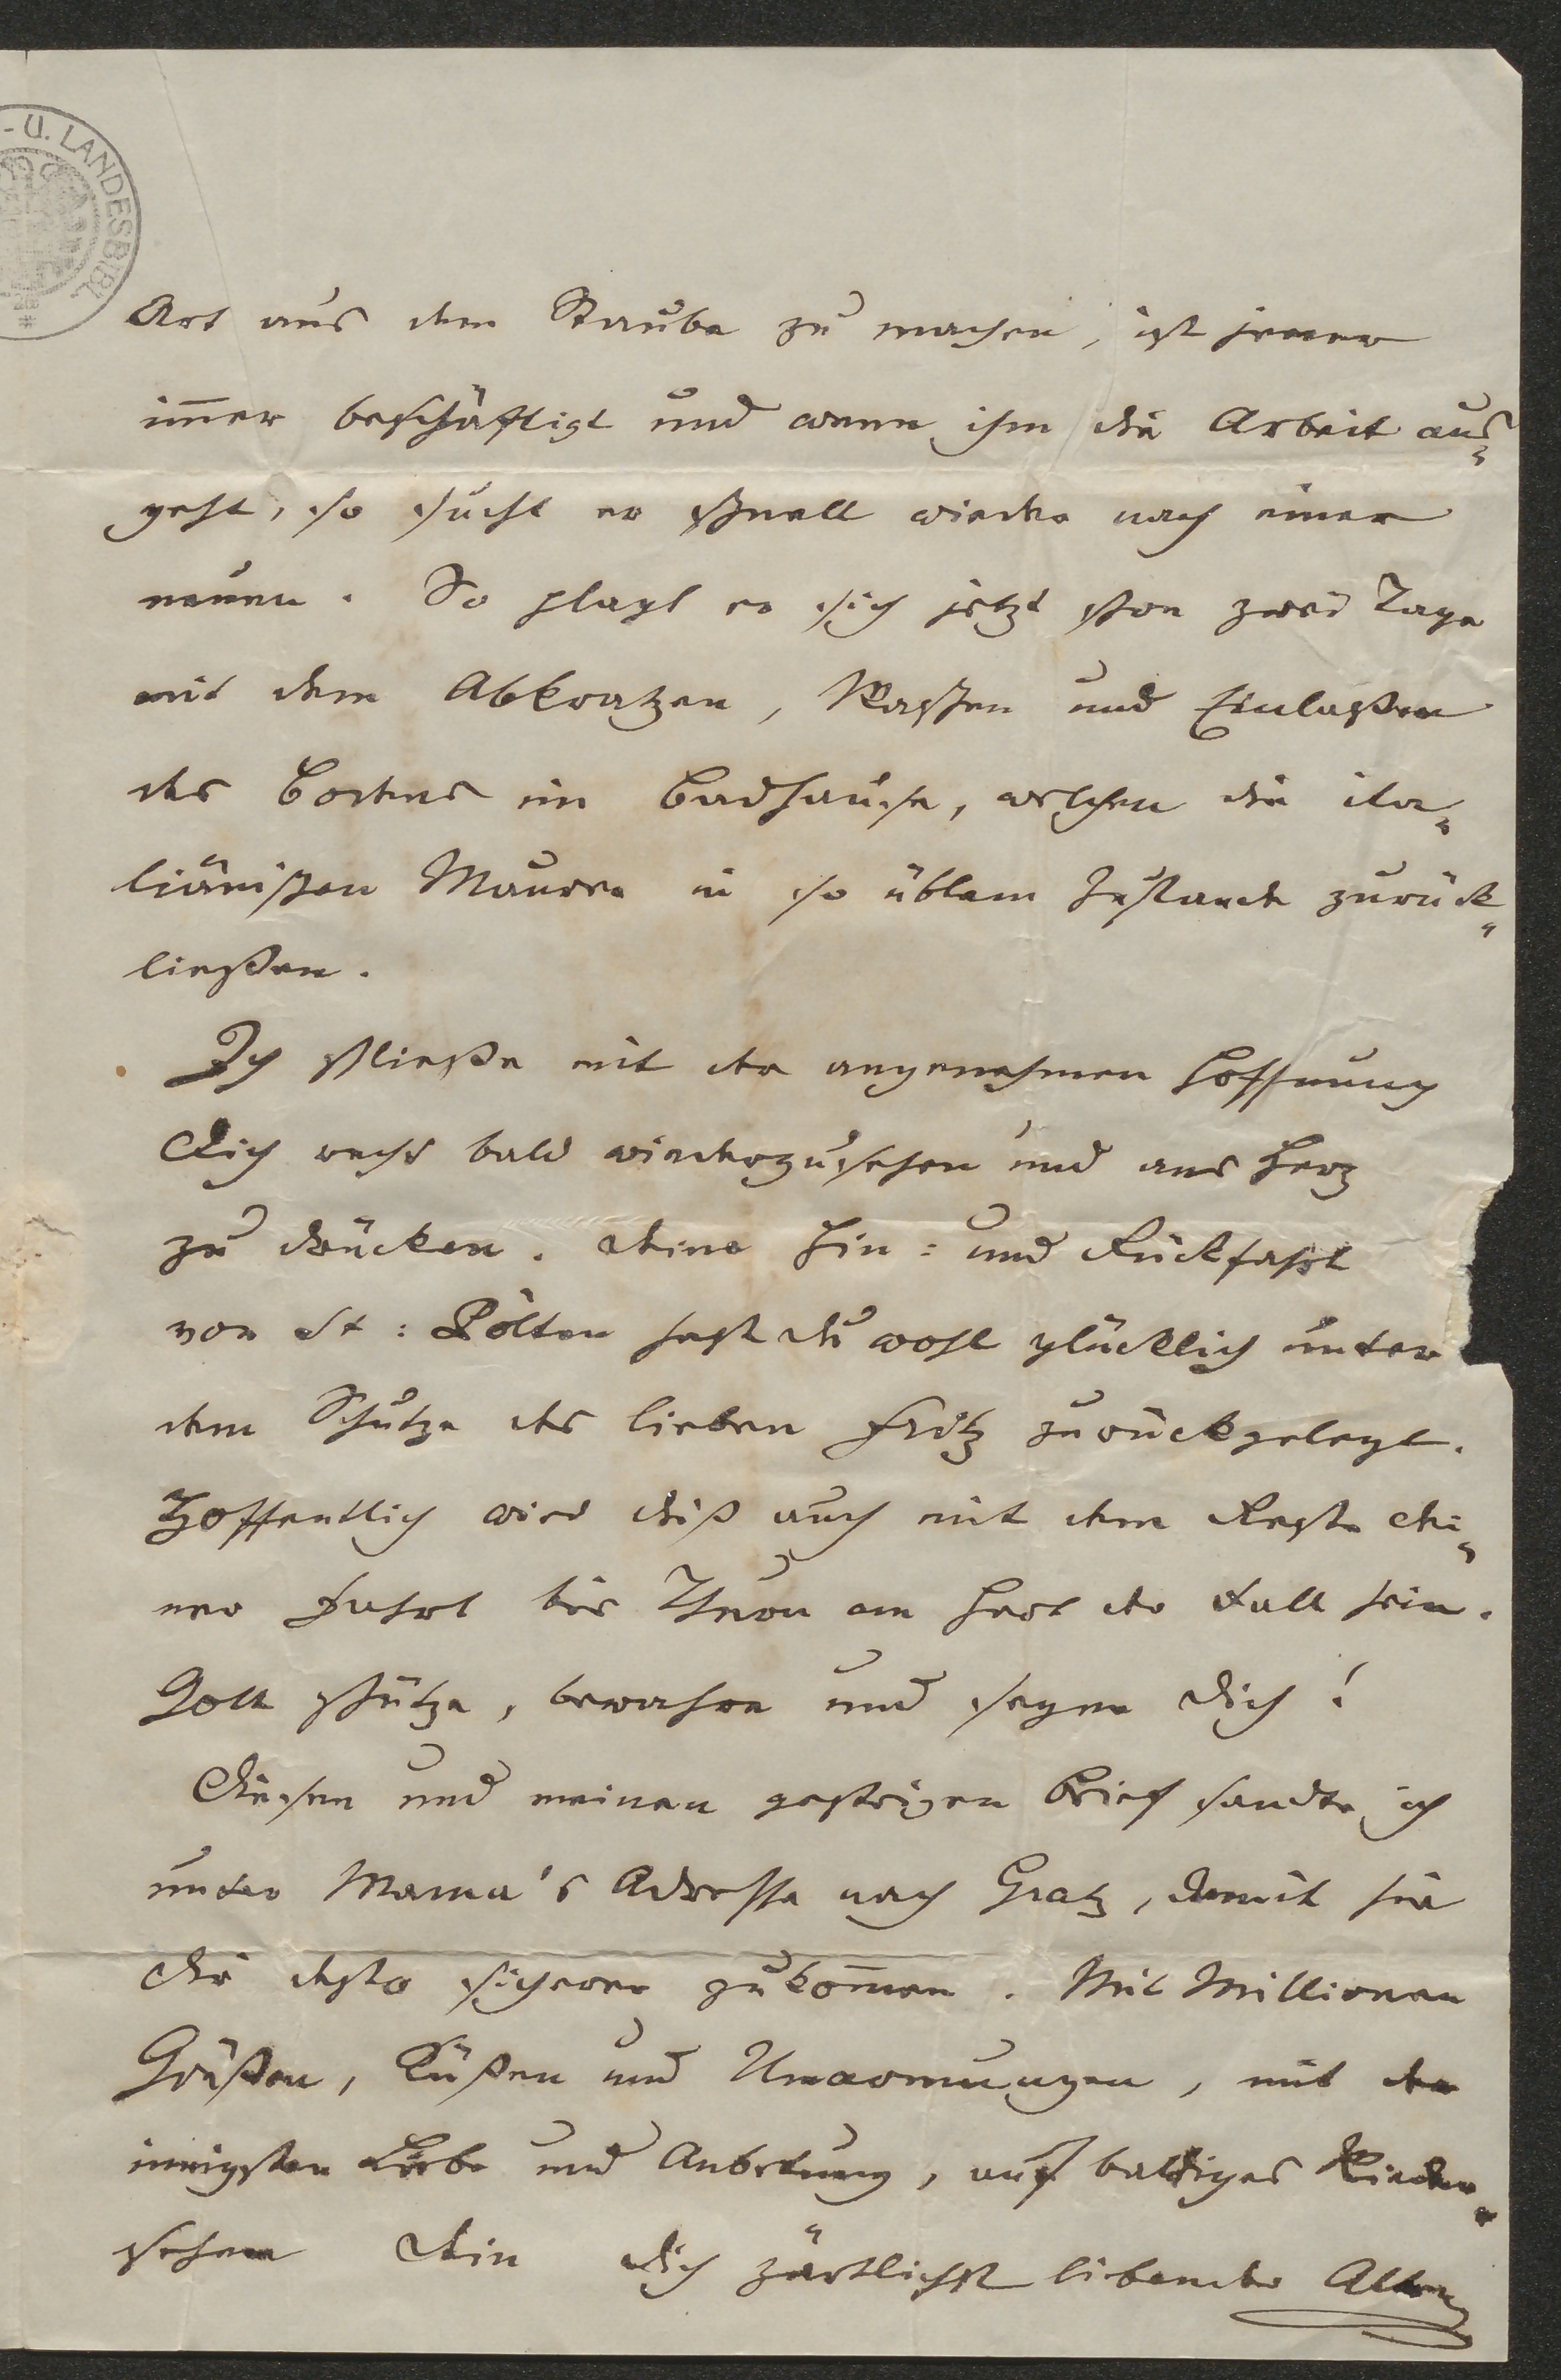 - U. LANDESBIBL.
Art aus dem Staube zu machen, ist jener
im̄er beschäftigt und wenn ihm die Arbeit aus¬
geht, so sucht er schnell wieder nach einer
neuen. So plagt er sich jetzt schon zwei Tage
mit dem Abkratzen, Waschen und Einlaßen
des Bodens im Badhause, welchen die ita¬
liänischen Maurer in so üblem Zustande zurück¬
ließen.
Ich schließe mit der angenehmen Hoffnung
Dich recht bald wiederzusehen und ans Herz
zu drücken. Deine Hin= und Rückfahrt
von St: Pölten hast Du wohl glücklich unter
dem Schutze des lieben Fritz zurückgelegt.
Hoffentlich wird diß auch mit dem Reste dei¬
ner Fahrt bis Thurn am Hart der Fall sein.
Gott schütze, bewahre und segne Dich!
Diesen und meinen gestrigen Brief sandte ich
unter Mama's Adresse nach Gratz, damit sie
Dir desto sicherer zukom̄en. Mit Millionen
Grüßen, Küßen und Umarmungen, mit der
innigsten Liebe und Anbetung, auf baldiges Wieder¬
sehen Dein Dich zärtlichst liebender Alter